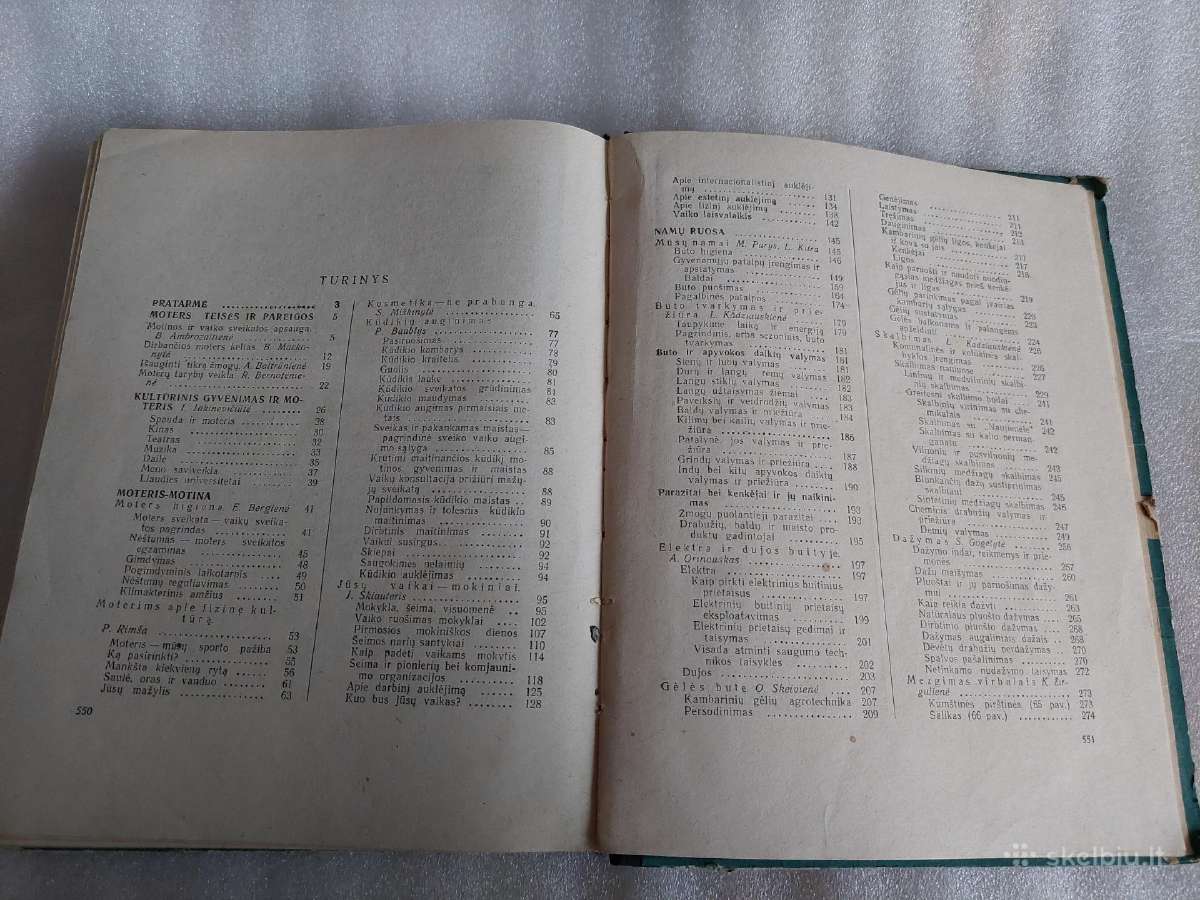 TURINYS
PRATARMĖ 3
MOTERS TEISĖS IR PAREIGOS 5
Motinos ir vaiko sveikatos apsauga.
B. Ambrozaitienė 5
Dirbančios moters kelias. B. Mačkonytė 12
Išauginti tikrą žmogų. A. Baltrūnienė 19
Moterų tarybų veikla. R. Bernotėnienė 22
KULTŪRINIS GYVENIMAS IR MOTERIS 26
Spauda ir moteris 38
Kinas 30
Teatras 32
Muzika 33
Dailė 35
Meno saviveikla 37
Liaudies universitetai 39
MOTERIS-MOTINA
Moters higiena E. Bergienė 41
Moters sveikata — vaikų sveikatos pagrindas 41
Nėštumas — moters sveikatos
egzaminas 48
Gimdymas 48
Pogimdyminis laikotarpis 49
Nėštumų reguliavimas 50
Klimakterinis amžius 51
Moterims apie fizinę kultūrą.
P. Rimša 53
Moteris — mūsų sporto pažiba 53
Ką pasirinkti? 55
Mankšta kiekvieną rytą 56
Saulė, oras ir vanduo 61
Jūsų mažylis 63
550
Kosmetika — ne prabanga.
S. Miškinytė 65
Kūdikių auginimas
P. Baublys 77
Pasiruošimas 77
Kūdikio kambarys 78
Kūdikio kraitelis 79
Guolis 80
Kūdikis lauke 81
Kūdikio sveikatos grūdinimas 81
Kūdikio maudymas 83
Kūdikio augimas pirmaisiais metais 83
Sveikas ir pakankamas maistas —
pagrindinė sveiko vaiko augimo sąlyga 85
Krūtimi maitinančios kūdikį motinos gyvenimas ir maistas 88
Vaikų konsultacija prižiūri mažųjų sveikatą 88
Papildomasis kūdikio maistas 89
Nujunkymas ir tolesnis kūdikio
maitinimas 90
Dirbtinis maitinimas 91
Vaikui susirgus 92
Skiepai 92
Saugokimės nelaimių 94
Kūdikio auklėjimas 94
Jūsų vaikai mokiniai.
J. Skiauteris 95
Mokykla, šeima, visuomenė 95
Vaiko ruošimas mokyklai 102
Pirmosios mokiniškos dienos 107
Šeimos narių santykiai 110
Kaip padėti vaikams mokytis 114
Šeima ir pionierių bei komjaunimo organizacijos 118
Apie darbinį auklėjimą 125
Kuo bus Jūsų vaikas? 128
Apie internacionalistinį auklėjimą 131
Apie estetinį auklėjimą 134
Apie fizinį auklėjimą 138
Vaiko laisvalaikis 142
NAMŲ RUOŠA 145
Mūsų namai M. Purys, L. Kitra 145
Buto higiena 146
Gyvenamųjų patalpų įrengimas ir
apstatymas 149
Baldai
Buto puošimas 159
Pagalbinės patalpos 164
Buto tvarkymas ir priežiūra. L. Kadžiauskienė 174
Taupykime laiką ir energiją 179
Pagrindinis, arba sezoninis, buto
tvarkymas 181
Buto ir apyvokos daiktų valymas 181
Sienų ir lubų valymas 181
Durų ir langų rėmų valymas 182
Langų stiklų valymas 182
Langų užtaisymas žiemai 183
Paveikslų ir veidrodžių valymas 183
Baldų valymas ir priežiūra 183
Kilimų bei kailių valymas ir priežiūra 186
Patalynė, jos valymas ir priežiūra 187
Grindų valymas ir priežiūra 188
Indų bei kitų apyvokos daiktų
valymas ir priežiūra 190
Parazitai bei kenkėjai ir jų naikinimas 193
Žmogų puolantieji parazitai 193
Drabužių, baldų ir maisto produktų gadintojai 195
Elektra ir dujos buityje.
A. Orinauskas 197
Elektra 197
Kaip pirkti elektrinius buitinius
prietaisus 197
Elektrinių buitinių prietaisų
eksploatavimas 199
Elektrinių prietaisų gedimai ir
taisymas 201
Visada atminti saugumo technikos taisykles 202
Dujos 203
Gėlės bute O. Skeivienė 207
Kambarinių gėlių agrotechnika 207
Persodinimas 209
Genėjimas 211
Laistymas 211
Tręšimas 212
Dauginimas 213
Kambarinių gėlių ligos, kenkėjai
ir kova su jais 217
Kenkėjai 217
Ligos 218
Kaip paruošti ir naudoti nuodingąsias medžiagas prieš kenkėjus ir ligas 219
Gėlių parinkimas pagal įvairias
kambarių sąlygas
Gėlių sustatymas 223
Gėlės balkonams ir palangėms
apželdinti 224
Skalbimas L. Kadžiauskienė 226
Komunalinės ir kolūkinės skalbyklos įrengimas 226
Skalbimas namuose 227
Lininių ir medvilninių skalbinių skalbimas 229
Greitesni skalbimo būdai 241
Skalbinių valymas su „Naujienėle" 242
Skalbimas su kalio permanganatu 242
Vilnonių ir pusvilnonių medžiagų skalbimas 243
Šilkinių medžiagų skalbimas 245
Blunkančių dažų sustiprinimas
skalbiant 245
Sintetinių medžiagų skalbimas 246
Cheminis drabužių valymas ir
priežiūra 247
Dėmių valymas 249
Dažymas S. Gogelytė 256
Dažymo indai, reikmenys ir priemonės 257
Dažų maišymas 260
Pluoštai ir jų paruošimas dažymui 261
Kaip reikia dažyti 263
Natūralaus pluošto dažymas 265
Dirbtinio pluošto dažymas 268
Dažymas augaliniais dažais 269
Dėvėtų drabužių perdažymas 270
Spalvos pašalinimas 270
Netinkamo nudažymo taisymas 272
Mezgimas virbalais K. Žirgulienė 273
Kumštinės pirštinės (65 pav.) 273
Šalikas (66 pav.) 274
551
skelbiu.lt